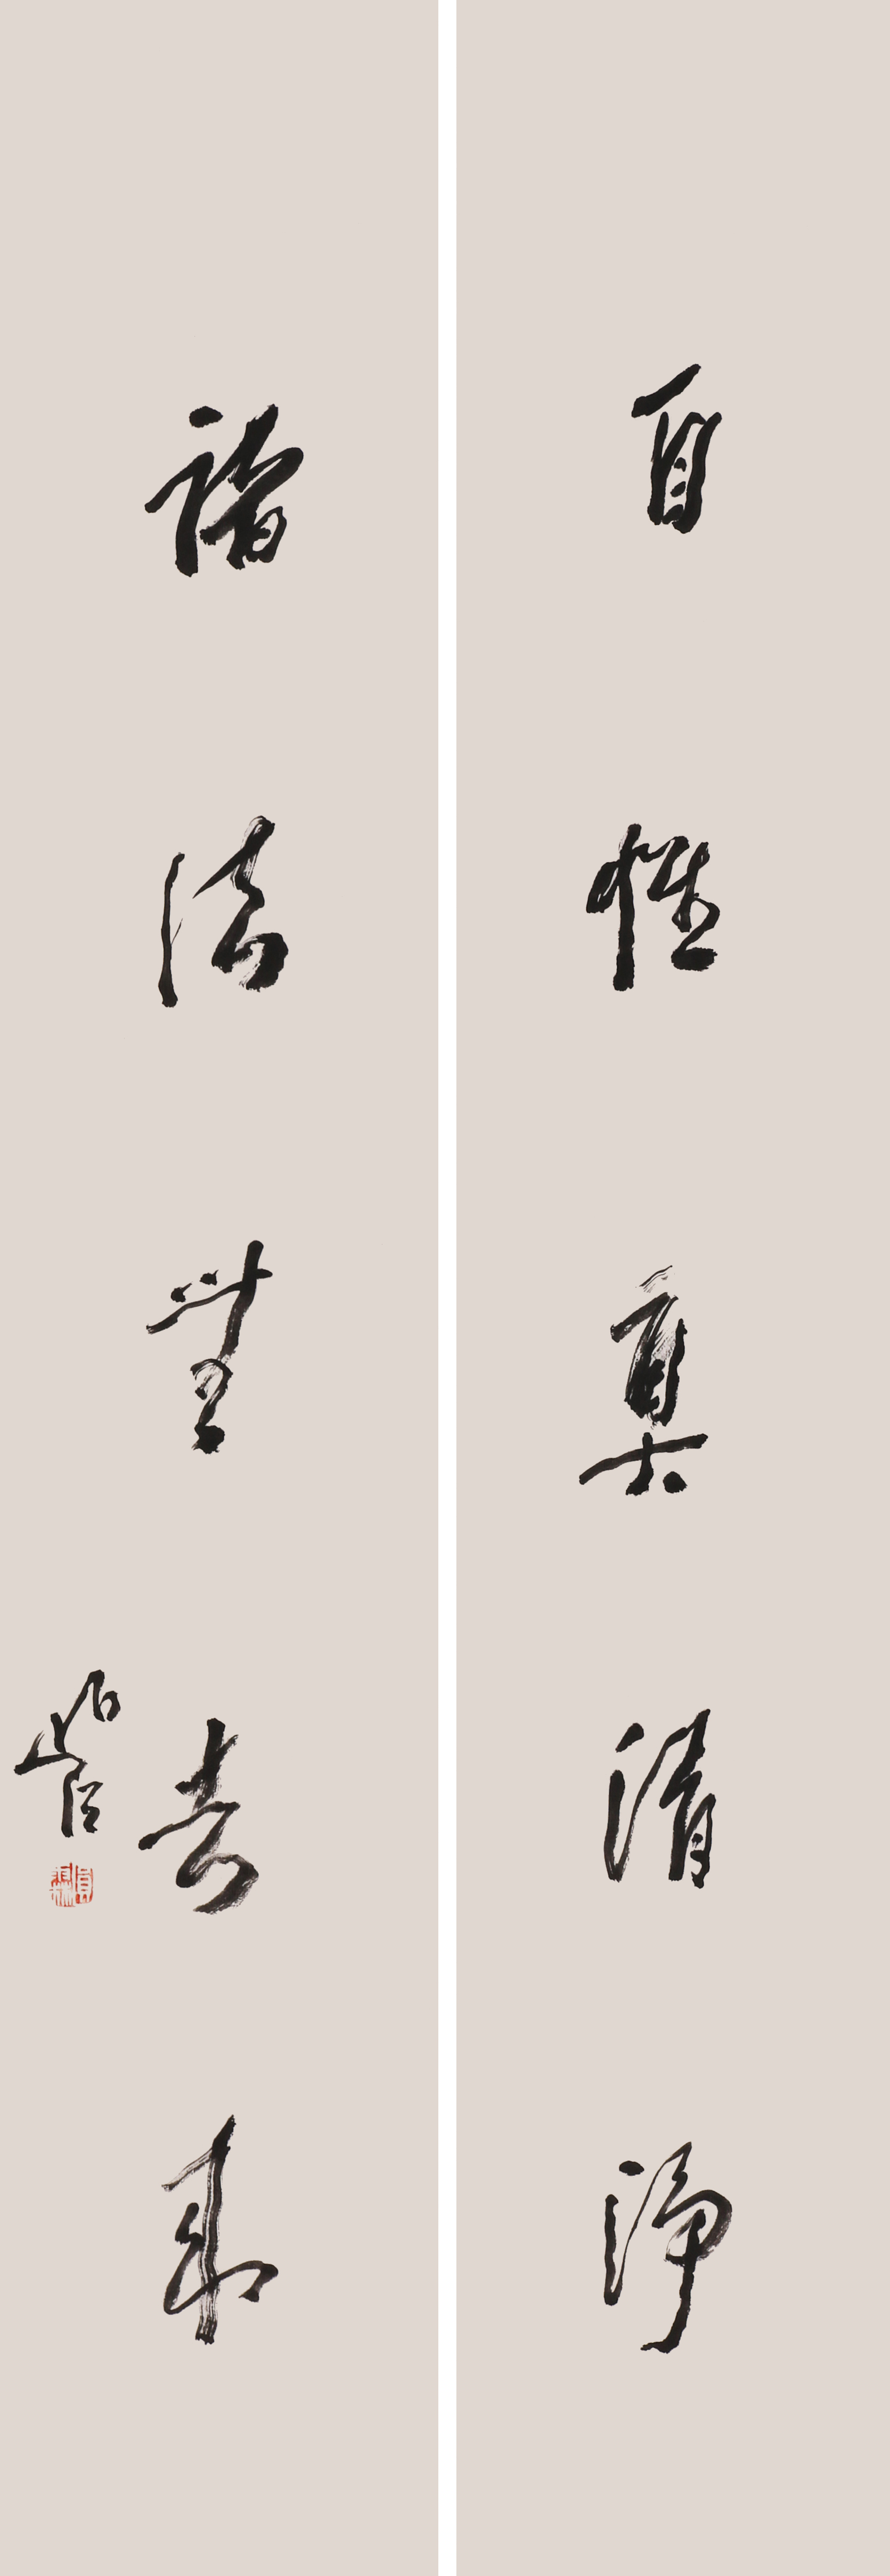 自性真清淨
諸法無去來